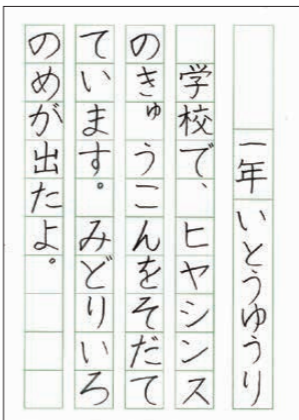 一年 いとうゆうり
学校で、ヒヤシンス
のきゅうこんをそだて
ています。みどりいろ
のめが出たよ。